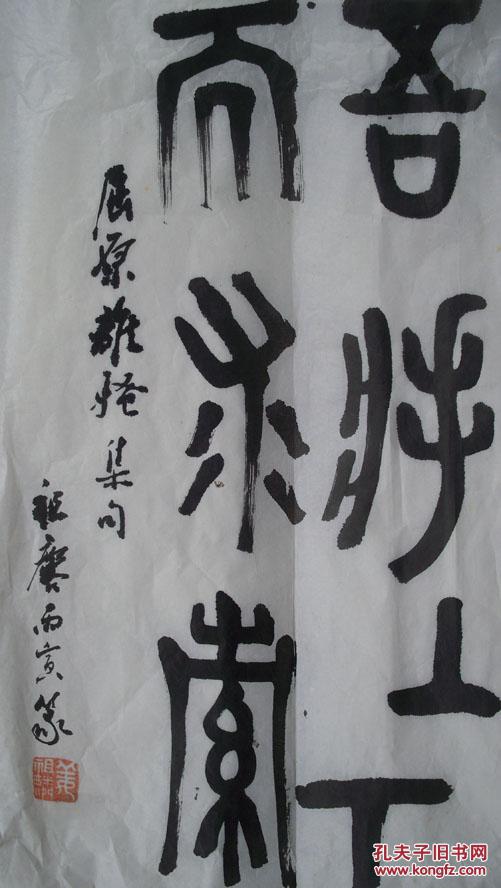 吾將上下
而求索
屈原離騷集句
祖 丙寅篆
孔夫子旧书网
www.kongfz.com